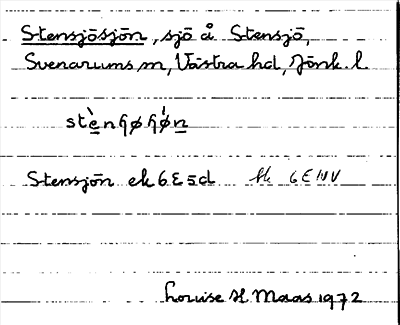 Stensjösjön, sjö å Stensjö,
Svenarums sn, Västra hd, Jönk. l.
stèn̲ɧøɧøn̲
Stensjön ek 6E5d fk 6E NV
Louise H Maas 1972